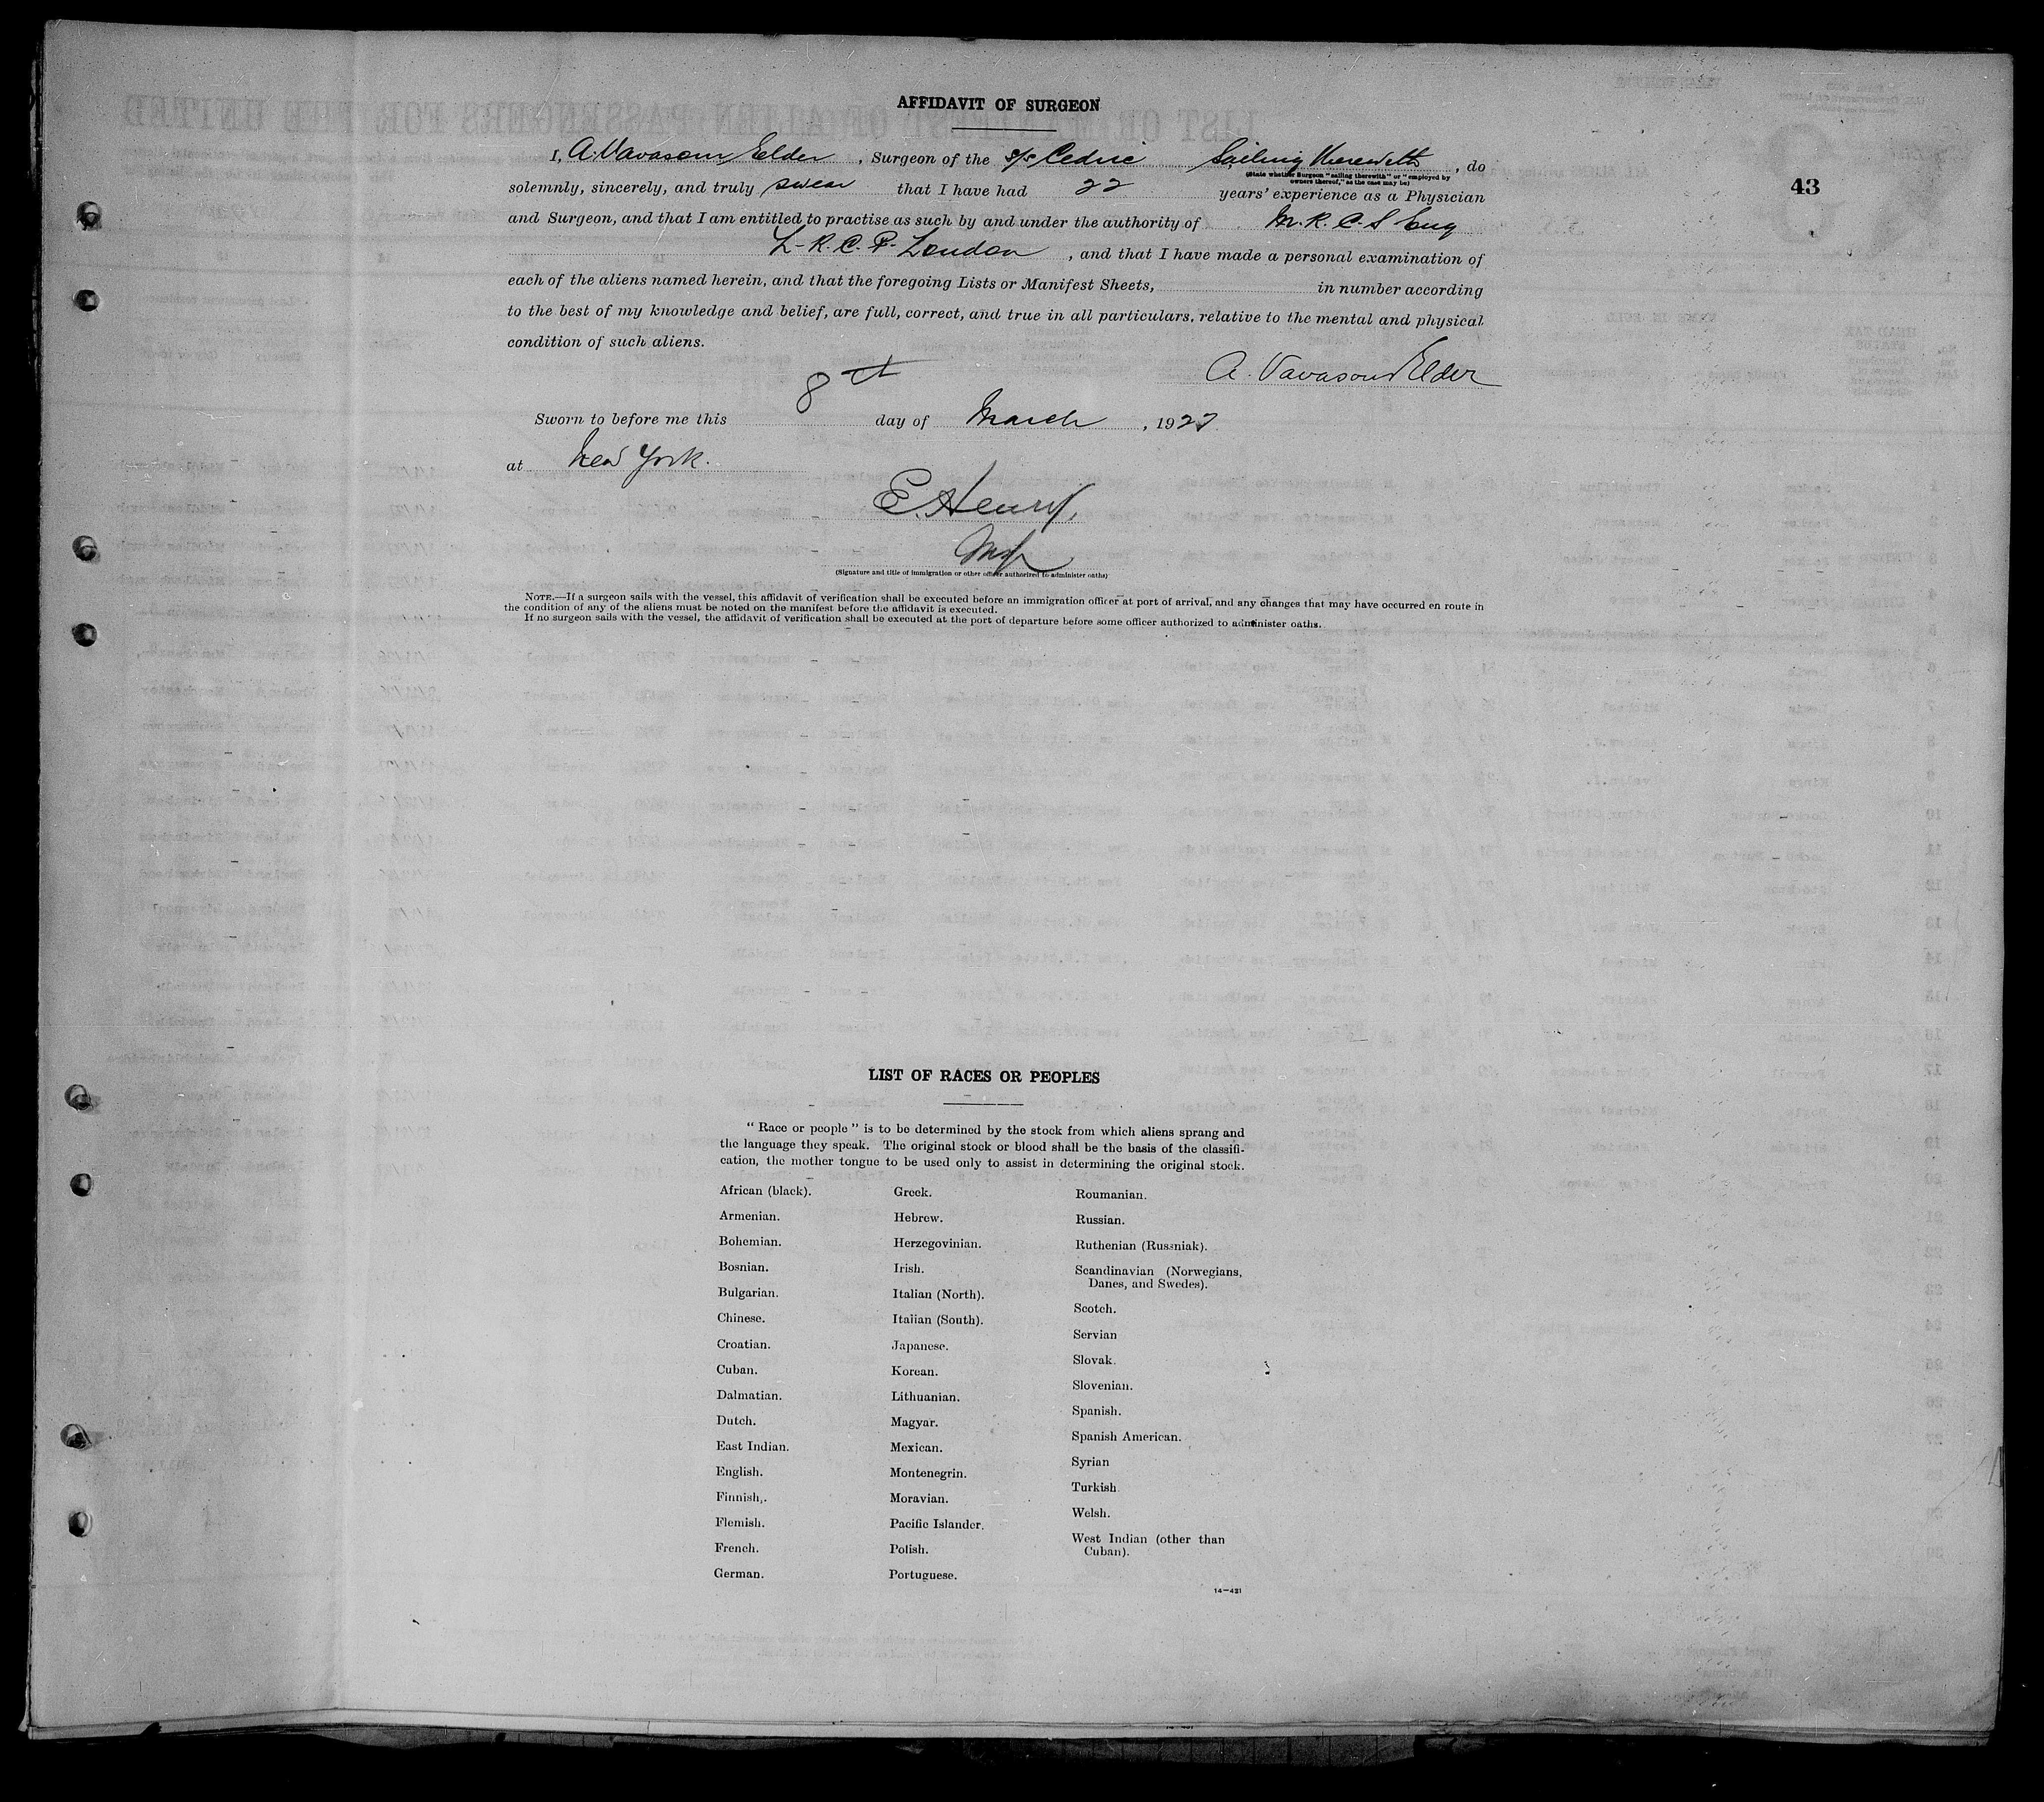 AFFIDAVIT OF SURGEON
43
I, A. Vavasour Elder, Surgeon of the s/s Cedric Sailing therewith, do
(State whether Surgeon "sailing therewith" or "employed by
owners thereof," as the case may be)
solemnly, sincerely, and truly swear that I have had 22 years' experience as a Physician
and Surgeon, and that I am entitled to practise as such by and under the authority of M.R.C.S Eng
L.R.C.P. London, and that I have made a personal examination of
each of the aliens named herein, and that the foregoing Lists or Manifest Sheets, in number according
to the best of my knowledge and belief, are full, correct, and true in all particulars, relative to the mental and physical
condition of such aliens.
A. Vavasour Elder
Sworn to before me this 8th day of March, 1927
at New York.
E. Henry,
(Signature and title of immigration or other officer authorized to administer oaths)
NOTE.—If a surgeon sails with the vessel, this affidavit of verification shall be executed before an immigration officer at port of arrival, and any changes that may have occurred en route in
the condition of any of the aliens must be noted on the manifest before the affidavit is executed.
If no surgeon sails with the vessel, the affidavit of verification shall be executed at the port of departure before some officer authorized to administer oaths.
LIST OF RACES OR PEOPLES
"Race or people" is to be determined by the stock from which aliens sprang and
the language they speak. The original stock or blood shall be the basis of the classifi-
cation, the mother tongue to be used only to assist in determining the original stock.
African (black).
Armenian.
Bohemian.
Bosnian.
Bulgarian.
Chinese.
Croatian.
Cuban.
Dalmatian.
Dutch.
East Indian.
English.
Finnish.
Flemish.
French.
German.
Greek.
Hebrew.
Herzegovinian.
Irish.
Italian (North).
Italian (South).
Japanese.
Korean.
Lithuanian.
Magyar.
Mexican.
Montenegrin.
Moravian.
Pacific Islander.
Polish.
Portuguese.
Roumanian.
Russian.
Ruthenian (Russniak).
Scandinavian (Norwegians,
Danes, and Swedes).
Scotch.
Servian
Slovak.
Slovenian.
Spanish.
Spanish American.
Syrian
Turkish
Welsh.
West Indian (other than
Cuban).
14—421